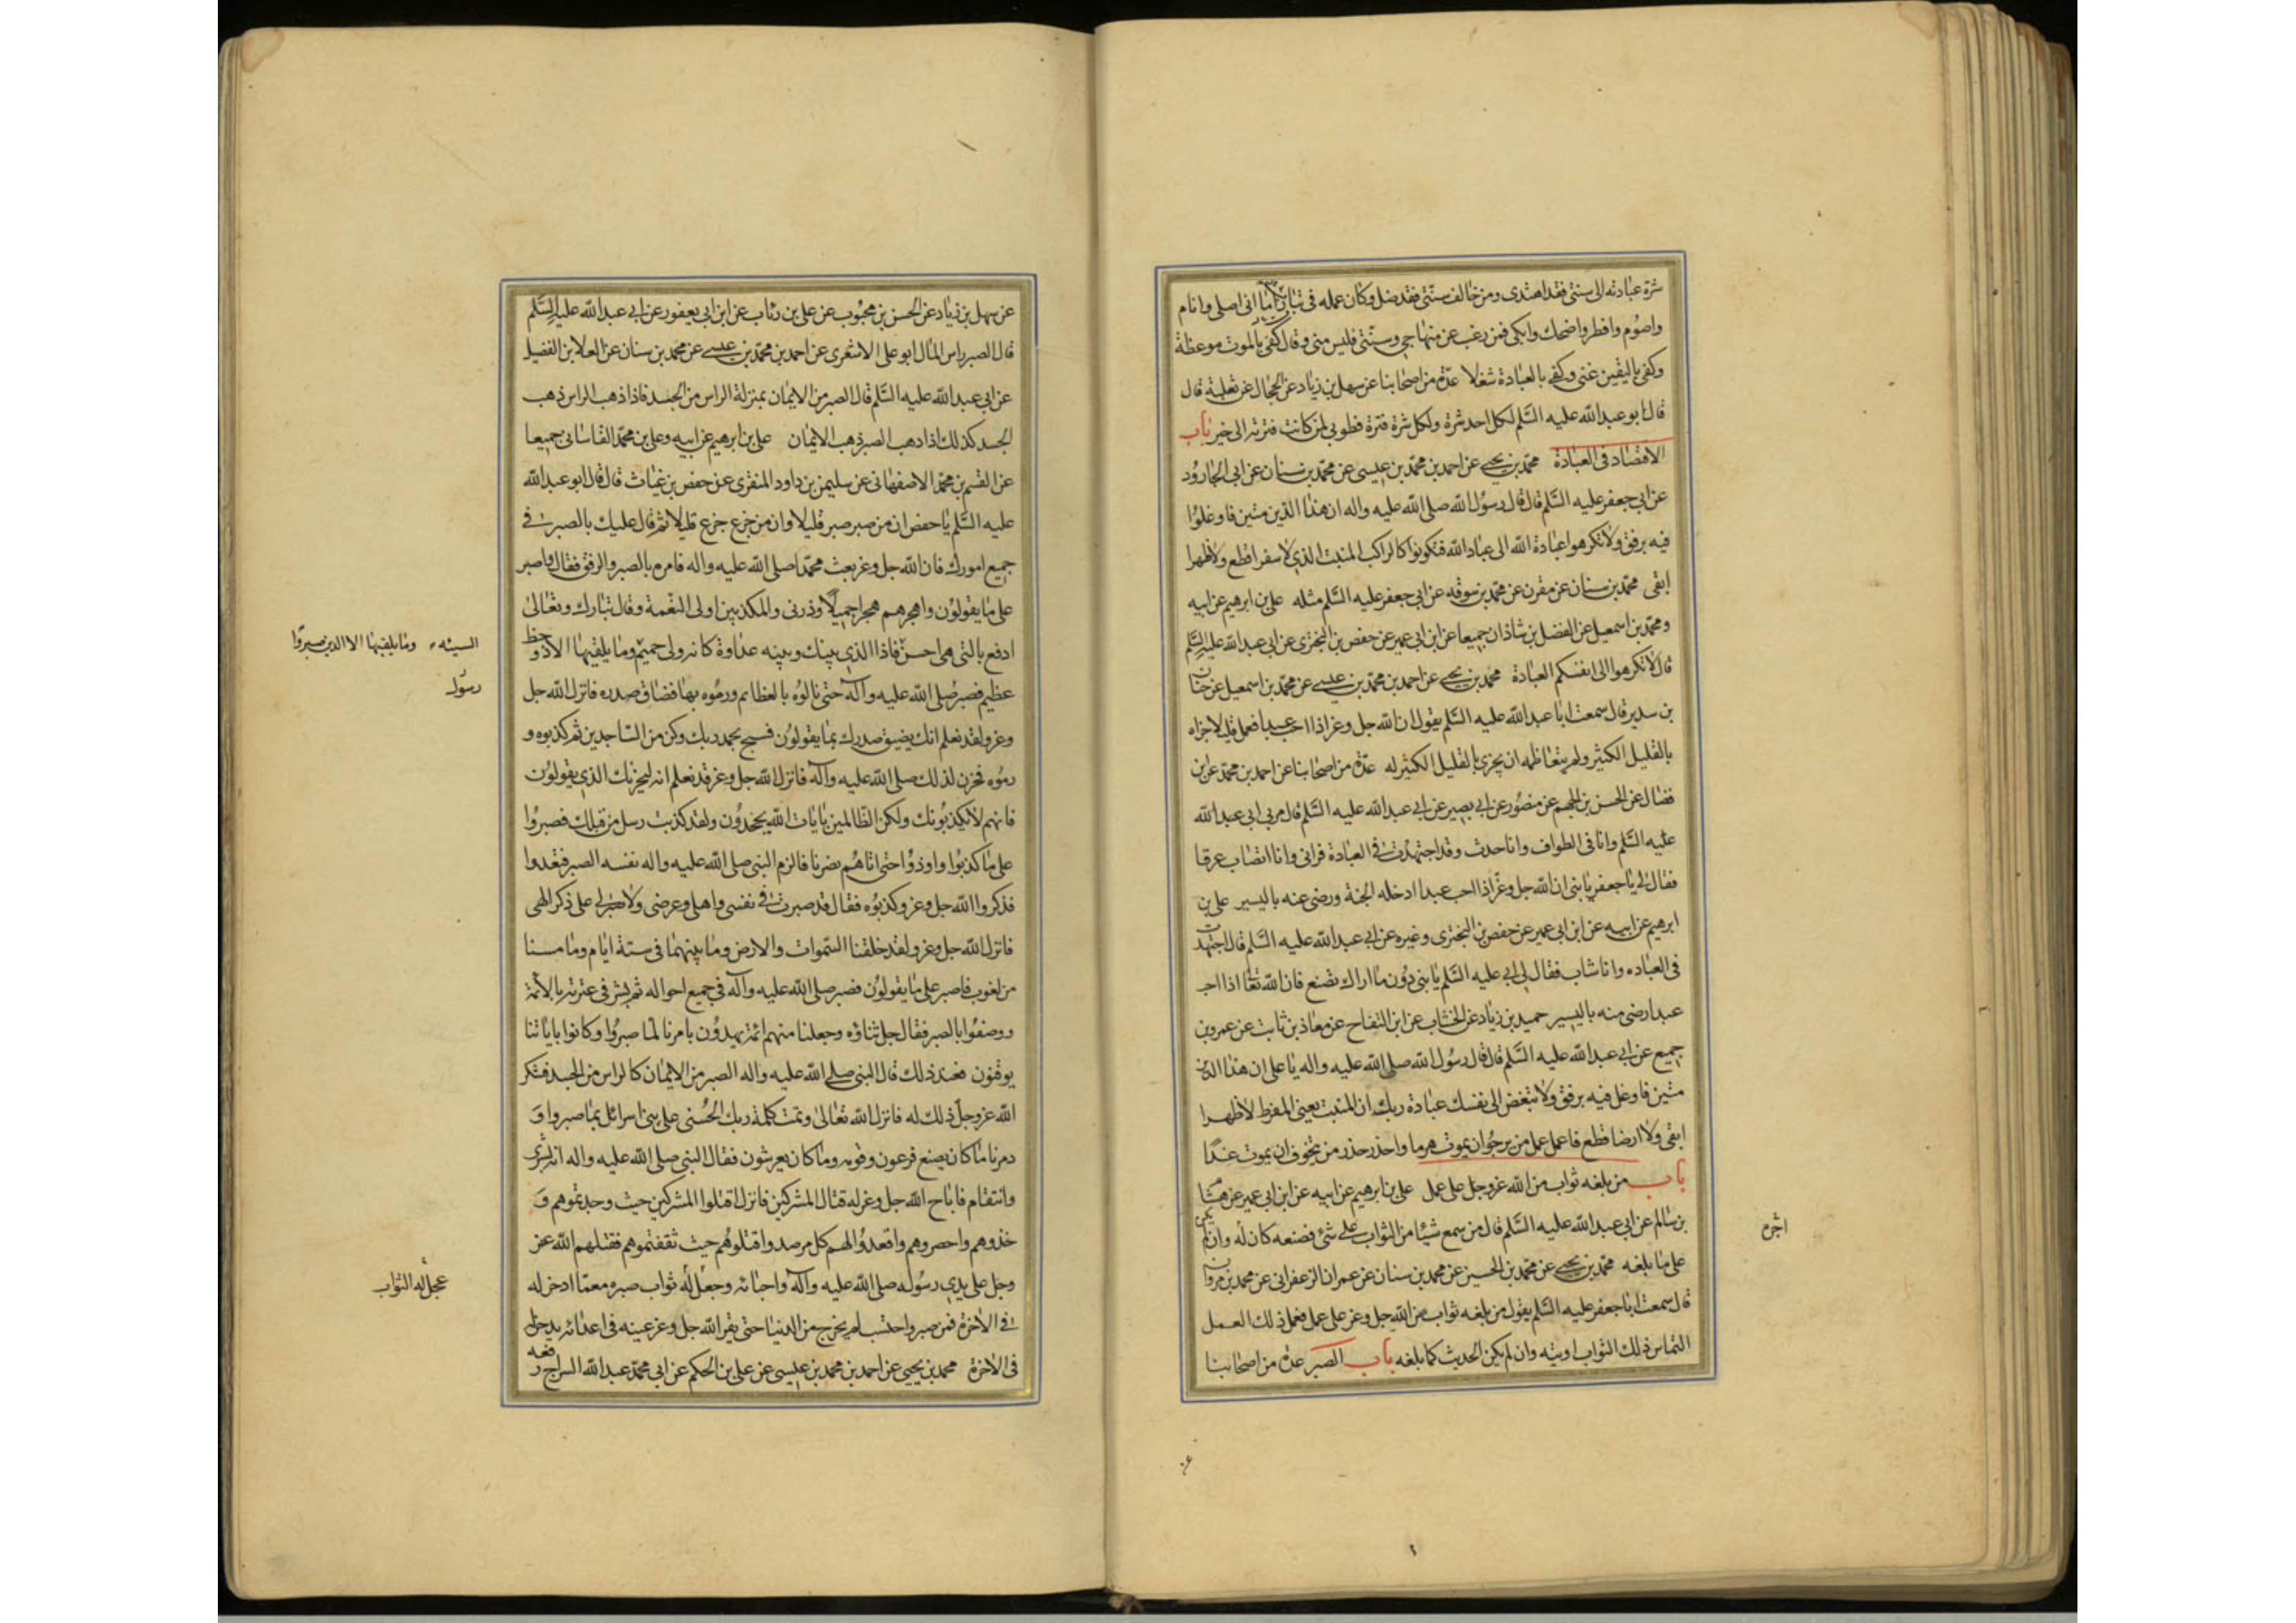 شرة عبادته الى سنتى فقد اهتدى ومن خالف سنتى فقد ضل وكان عمله فى تباب اما انى اصلى وانام
واصوم وافطر واضحك وابكى فمن رغب عن منهاجى وسنتى فليس منى وقال كفى بالموت موعظة
وكفى باليقين غنى وكفى بالعبادة شغلا عدة من اصحابنا عن سهل بن زياد عن الحجال عن ثعلبة قال
قال ابو عبد الله عليه السلم لكل احد شرة ولكل شرة فترة فطوبى لمن كانت فترته الى خير باب
الاقتصاد فى العبادة محمد بن يحيى عن احمد بن محمد بن عيسى عن محمد بن سنان عن ابى الجارود
عن ابى جعفر عليه السلم قال قال رسول الله صلى الله عليه واله ان هذا الدين متين فاوغلوا
فيه برفق ولا تكرهوا عبادة الله الى عباد الله فتكونوا كالراكب المنبت الذى لا سفرا قطع ولا ظهرا
ابقى محمد بن سنان عن مقرن عن محمد بن سوقه عن ابى جعفر عليه السلم مثله على بن ابرهيم عن ابيه
ومحمد بن اسمعيل عن الفضل بن شاذان جميعا عن ابن ابى عمير عن حفص بن البخترى عن ابى عبد الله عليه السلم
قال لا تكرهوا الى انفسكم العبادة محمد بن يحيى عن احمد بن محمد بن عيسى عن محمد بن اسمعيل عن حنان
بن سدير قال سمعت ابا عبد الله عليه السلم يقول ان الله جل وعز اذا احب عبدا فعمل قليلا جزاه
بالقليل الكثير ولم يتعاظمه ان يجزى بالقليل الكثير له عدة من اصحابنا عن احمد بن محمد عن ابن
فضال عن الحسن بن الجهم عن منصور عن ابى بصير عن ابى عبد الله عليه السلم قال مر بى ابى عبد الله
عليه السلم وانا فى الطواف وانا حدث وقد اجتهدت فى العبادة فرانى وانا اتصاب عرقا
فقال لى يا جعفر يا بنى ان الله جل وعز اذا احب عبدا ادخله الجنة ورضى عنه باليسير على بن
ابرهيم عن ابيه عن ابن ابى عمير عن حفص بن البخترى وغيره عن ابى عبد الله عليه السلم قال اجتهدت
فى العباده وانا شاب فقال لى ابى عليه السلم يا بنى دون ما اراك تصنع فان الله تعا اذا احب
عبدا رضى منه باليسير حميد بن زياد عن الخشاب عن ابن التفاح عن معاذ بن ثابت عن عمرو بن
جميع عن ابى عبد الله عليه السلم قال قال رسول الله صلى الله عليه واله يا على ان هذا الدين
متين فاوغل فيه برفق ولا تبغض الى نفسك عبادة ربك ان المنبت يعنى المفرط لا ظهرا
ابقى ولا ارضا قطع فاعمل عمل من يرجو ان يموت هرما واحذر حذر من يتخوف ان يموت غدا
باب من بلغه ثواب من الله عز وجل على عمل على بن ابرهيم عن ابيه عن ابن ابى عمير عن هشام
بن سالم عن ابى عبد الله عليه السلم قال من سمع شيئا من الثواب على شئ فصنعه كان له وان لم يكن
على ما بلغه محمد بن يحيى عن محمد بن الحسين عن محمد بن سنان عن عمران الزعفرانى عن محمد بن مروان
قال سمعت ابا جعفر عليه السلم يقول من بلغه ثواب من الله جل وعز على عمل فعمل ذلك العمل
التماس ذلك الثواب اوتيه وان لم يكن الحديث كما بلغه باب الصبر عدة من اصحابنا
اجره
عن سهل بن زياد عن الحسن بن محبوب عن على بن رئاب عن ابن ابى يعفور عن ابى عبد الله عليه السلم
قال الصبر راس المال ابو على الاشعرى عن احمد بن محمد بن عيسى عن محمد بن سنان عن العلا بن الفضيل
عن ابى عبد الله عليه السلم قال الصبر من الايمان بمنزلة الراس من الجسد فاذا ذهب الراس ذهب
الجسد كذلك اذا ذهب الصبر ذهب الايمان على بن ابرهيم عن ابيه وعلى بن محمد القاسانى جميعا
عن القسم بن محمد الاصفهانى عن سليمن بن داود المنقرى عن حفص بن غياث قال قال ابو عبد الله
عليه السلم يا حفص ان من صبر صبر قليلا وان من جزع جزع قليلا ثم قال عليك بالصبر فى
جميع امورك فان الله جل وعز بعث محمدا صلى الله عليه واله فامره بالصبر والرفق فقال واصبر
على ما يقولون واهجرهم هجرا جميلا وذرنى والمكذبين اولى النعمة وقال تبارك وتعالى
ادفع بالتى هى احسن فاذا الذى بينك وبينه عداوة كانه ولى حميم وما يلقيها الا ذو حظ
عظيم فصبر صلى الله عليه وآله حتى نالوه بالعظائم ورموه بها فضاق صدره فانزل الله جل
وعز ولقد نعلم انك يضيق صدرك بما يقولون فسبح بحمد ربك وكن من الساجدين ثم كذبوه و
رموه فحزن لذلك صلى الله عليه وآله فانزل الله جل وعز قد نعلم انه ليحزنك الذى يقولون
فانهم لا يكذبونك ولكن الظالمين بايات الله يجحدون ولقد كذبت رسل من قبلك فصبروا
على ما كذبوا واوذوا حتى اتاهم نصرنا فالزم النبى صلى الله عليه واله نفسه الصبر فتعدوا
فذكروا الله جل وعز وكذبوه فقال قد صبرت فى نفسى واهلى وعرضى ولا صبر لى على ذكر الهى
فانزل الله جل وعز ولقد خلقنا السموات والارض وما بينهما فى ستة ايام وما مسنا
من لغوب فاصبر على ما يقولون فصبر صلى الله عليه وآله فى جميع احواله ثم بشر فى عترته بالائمة
ووصفوا بالصبر فقال جل ثناؤه وجعلنا منهم ائمة يهدون بامرنا لما صبروا وكانوا باياتنا
يوقنون فعند ذلك قال النبى صلى الله عليه واله الصبر من الايمان كالراس من الجسد فشكر
الله عز وجل ذلك له فانزل الله تعالى وتمت كلمة ربك الحسنى على بنى اسرائل بما صبروا و
دمرنا ما كان يصنع فرعون وقومه وما كانوا يعرشون فقال النبى صلى الله عليه واله انه بشرى
وانتقام فاباح الله جل وعز له قتال المشركين فانزل اقتلوا المشركين حيث وجدتموهم و
خذوهم واحصروهم واقعدوا لهم كل مرصد واقتلوهم حيث ثقفتموهم فقتلهم الله عز
وجل على يدى رسوله صلى الله عليه وآله واحبائه وجعل له ثواب صبره مع ما ادخر له
فى الاخرة فمن صبر واحتسب لم يخرج من الدنيا حتى يقر الله جل وعز عينه فى اعدائه مع ما يدخر له
فى الاخرة محمد بن يحيى عن احمد بن محمد بن عيسى عن على بن الحكم عن ابى محمد عبد الله السراج رفعه
السيئه وما يلقيها الا الذين صبروا
رسول
عجل له الثواب